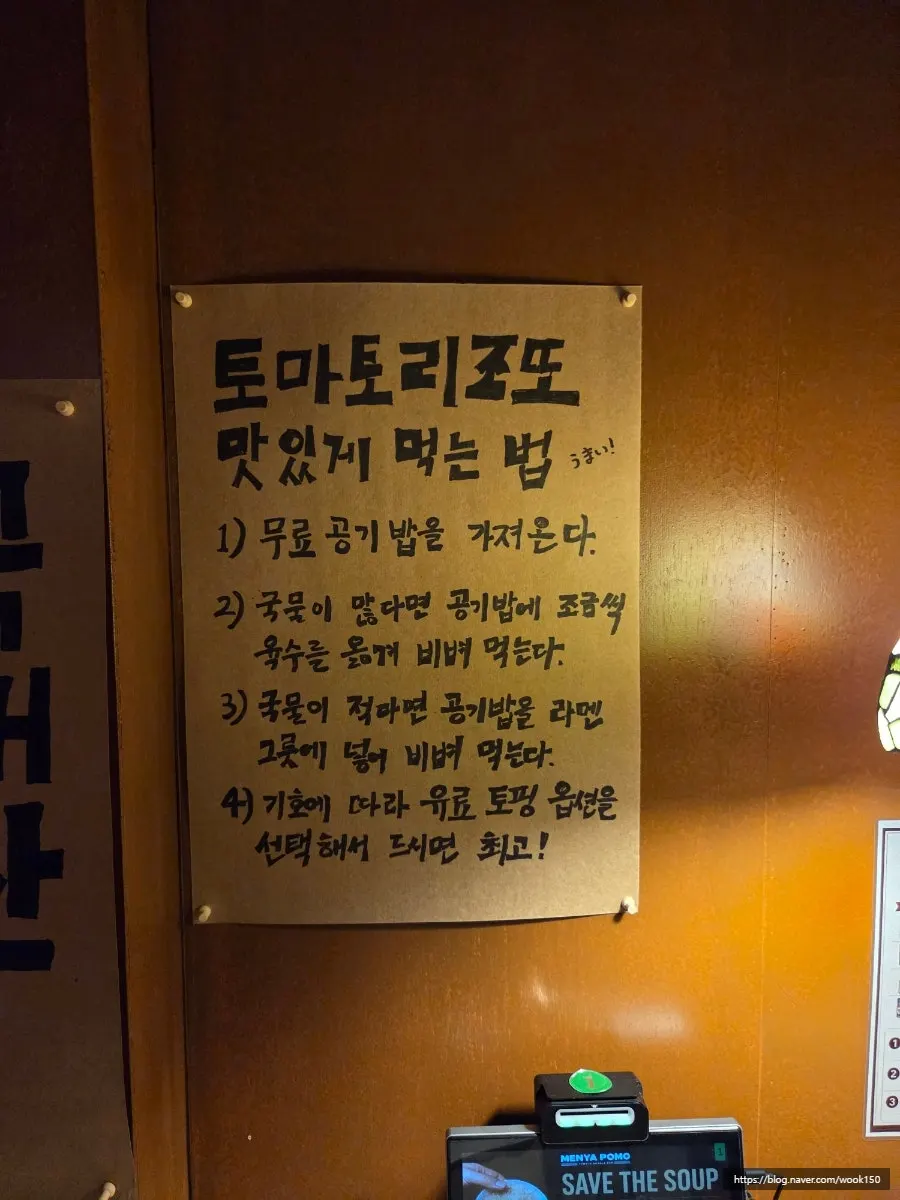 토마토리조또
맛있게 먹는 법 うまい!
1) 무료 공기밥을 가져온다.
2) 국물이 많다면 공기밥에 조금씩
육수를 옮겨 비벼 먹는다.
3) 국물이 적다면 공기밥을 라멘
그릇에 넣어 비벼 먹는다.
4) 기호에 따라 유료 토핑 옵션을
선택해서 드시면 최고!
1
2
3
MENYA POMO
SAVE THE SOUP
https://blog.naver.com/wook150